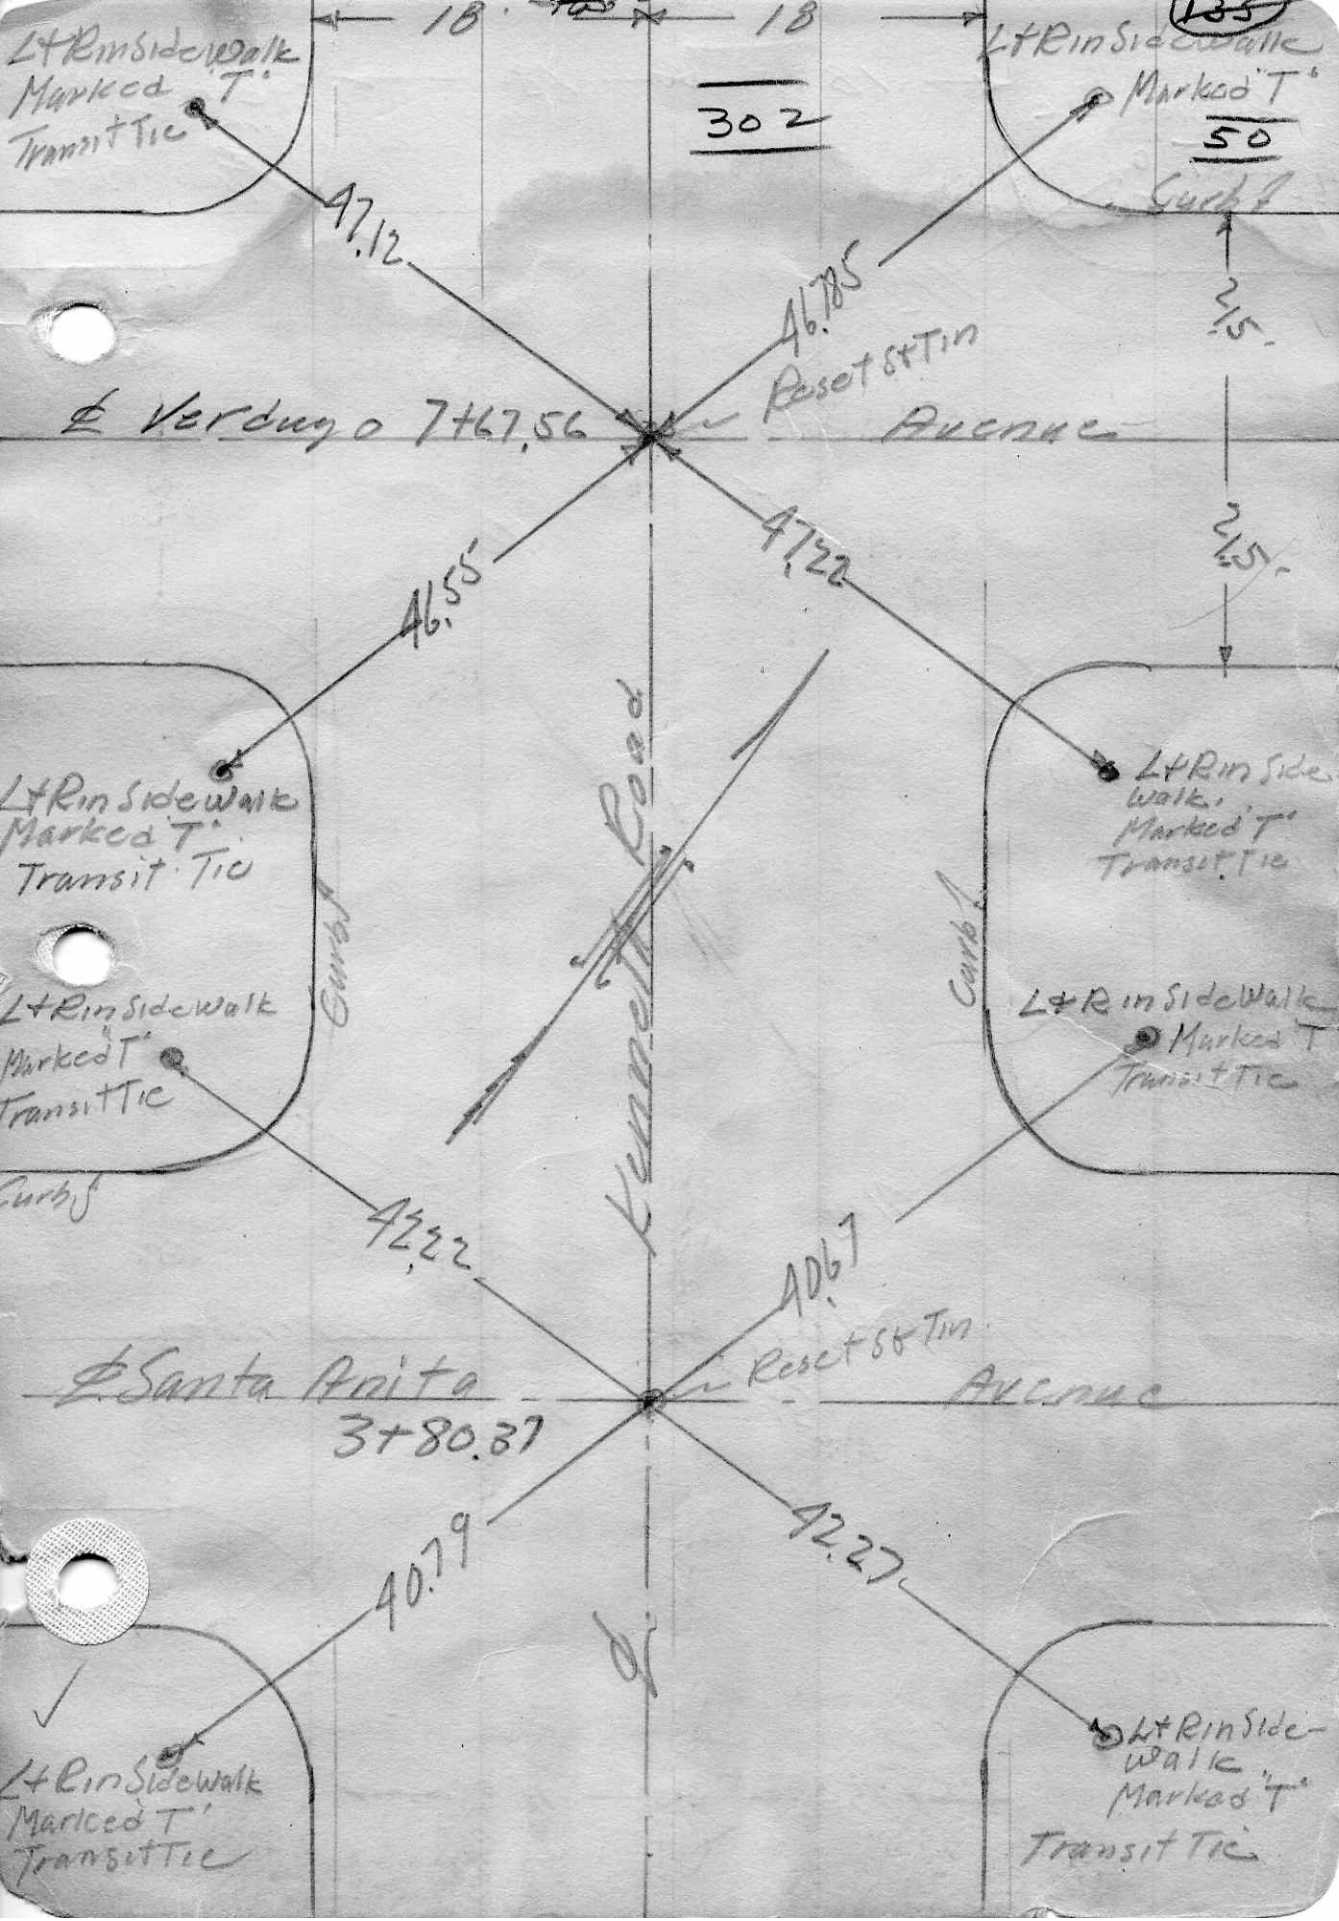 18
18
135
L+RinSidewalk
Marked "T"
Transit Tie
302
L+RinSidewalk
Marked "T"
50
Curb
47.12
46.785
21.5
Reset S+Tin
Verdugo 7+67.56
Avenue
46.55
47.22
21.5
L+RinSidewalk
Marked "T"
Transit Tie
L+RinSide
walk.
Marked "T"
Transit Tie
Kenneth Road
Curb
Curb
L+RinSidewalk
Marked "T"
Transit Tie
L+R in Sidewalk
Marked T
Transit Tie
Curb
42.22
40.67
Reset S+Tin
Santa Anita
Avenue
3+80.37
40.79
42.27
L+RinSidewalk
Marked "T"
Transit Tie
L+RinSide-
walk
Marked "T"
Transit Tie